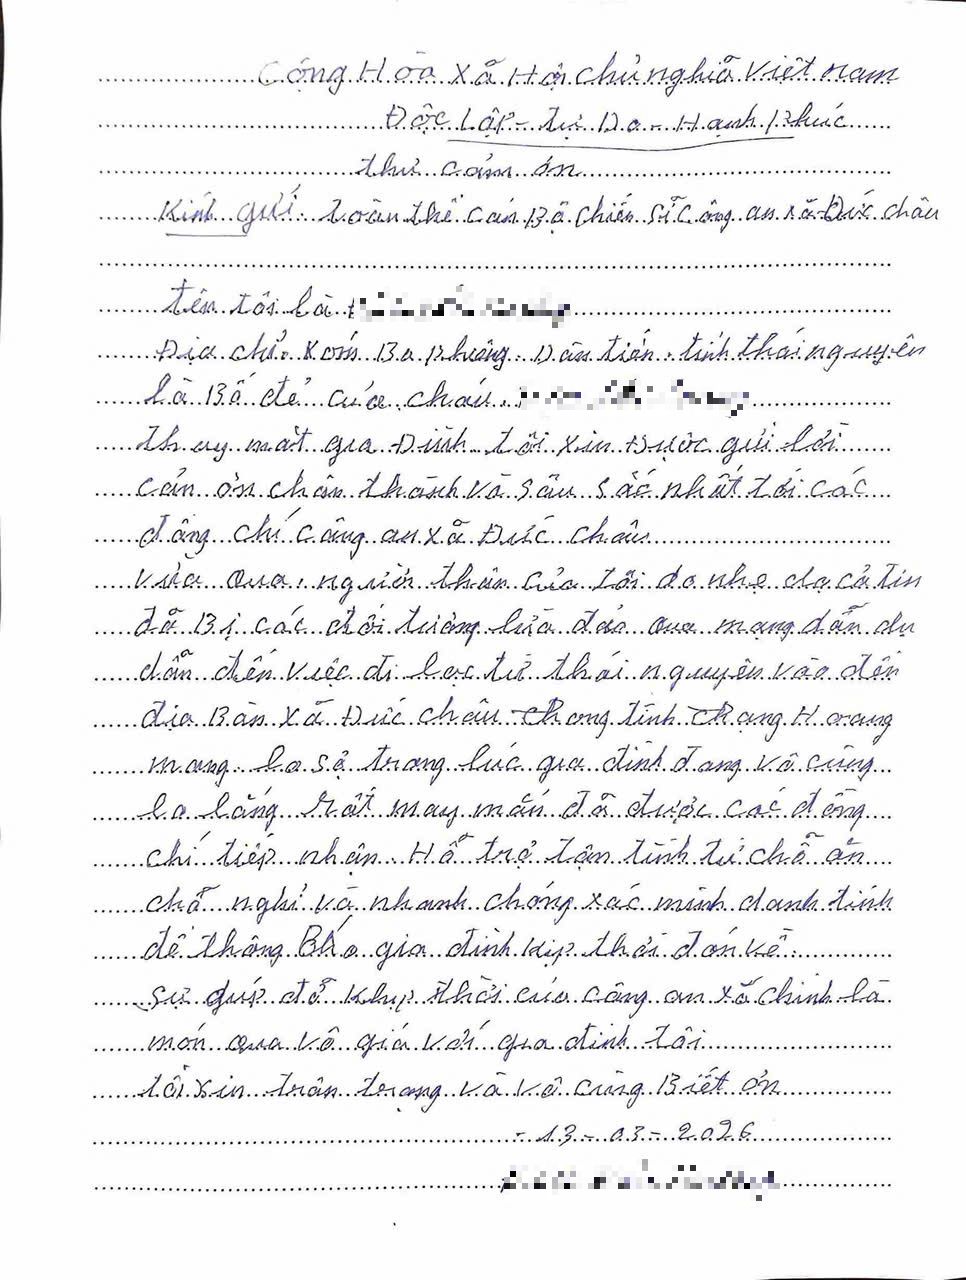 Cộng Hòa Xã Hội chủ nghĩã Việt nam
Độc Lập - tự Do - Hạnh Phúc
thư cảm ơn
Kính gửi toàn thể cán Bộ chiến sĩ công an xã Đức châu
tên tôi là
Địa chỉ. Xóm Ba Phường Dân tiến. tỉnh thái nguyên
là Bố đẻ của cháu.
thay mặt gia Đình tôi xin Được gửi lời
cản ơn chân thành và sâu sắc nhất tới các
đồng chí công an xã Đức châu
vừa qua, người thân của tôi do nhẹ dạ cả tin
đã Bị các đối tượng lừa đảo qua mạng dẫn dụ
dẫn đến việc đi lạc từ thái nguyên vào đến
địa Bàn xã Đức châu trong tình trạng Hoang
mang. lo sợ trong lúc gia đình đang vô cùng
lo lắng rất may mắn đã được các đồng
chí tiếp nhận Hỗ trợ tận tình từ chỗ ăn
chỗ nghỉ và nhanh chóng xác minh danh tính
để thông Báo gia đình kịp thời đón về.
sự giúp đỡ kịp thời của công an xã chính là
món qua vô giá với gia đình tôi
tôi xin trân trọng và vô cùng Biết ơn
- 13 - 03 - 2026